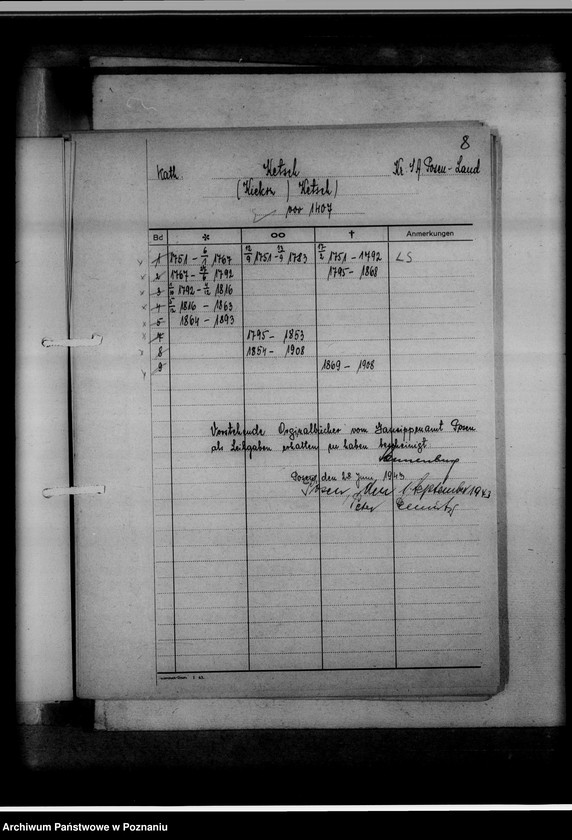 8
Kath. Ketsch Kr. Posen-Land
(Kiekrz) Ketsch)
vor 1407
Bd * ∞ † Anmerkungen
1 1751 - 6/1 1767 1751 - 1783 1751-1792 LS
2 1767 - 1792 1795 - 1868
3 1792 - 4/12 1816
4 1816 - 1863
5 1864 - 1893
7 1795 - 1853
8 1854 - 1908
9 1869 - 1908
Vorstehende Orginalbücher vom Gausippenamt Posen
als Leihgaben erhalten zu haben bescheinigt
Posen, den 28 Juni 1943
Posen, den 1 September 1943
Peter
Archiwum Państwowe w Poznaniu